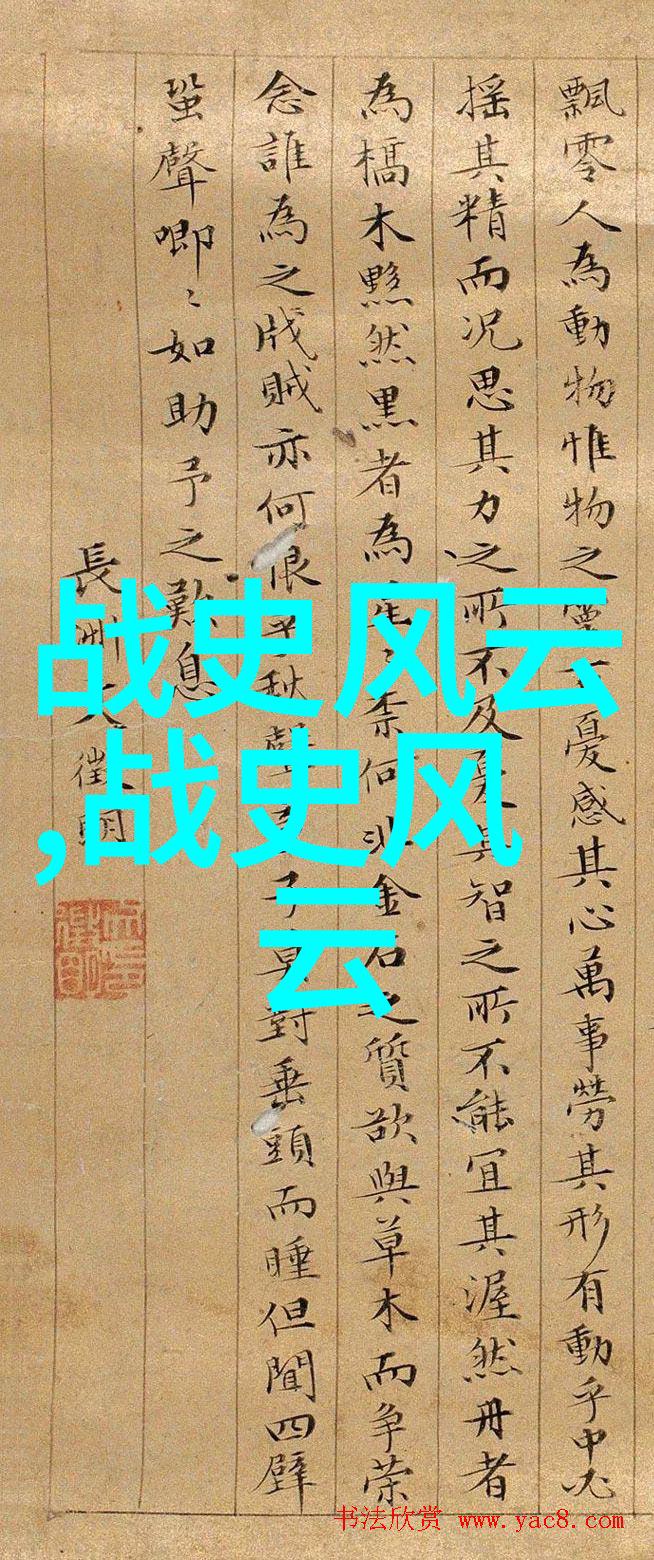 飄零人為動物惟物之靈百憂感其心萬事勞其形有動乎中必
揺其精而况思其力之所不及憂其智之所不能宜其渥然丹者
為槁木黟然黒者為星〻柰何非金石之質欲與草木而争榮
念誰為之戕賊亦何恨乎秋聲童子莫對垂頭而睡但聞四壁
蛩聲唧〻如助予之歎息
長洲文徵明
战史风云
,战史风
云
书法欣赏 www.yac8.com